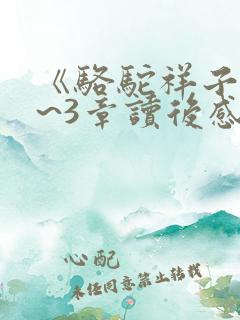 《駱駝祥子
~3章讀後感
心配
未经同意禁止转载